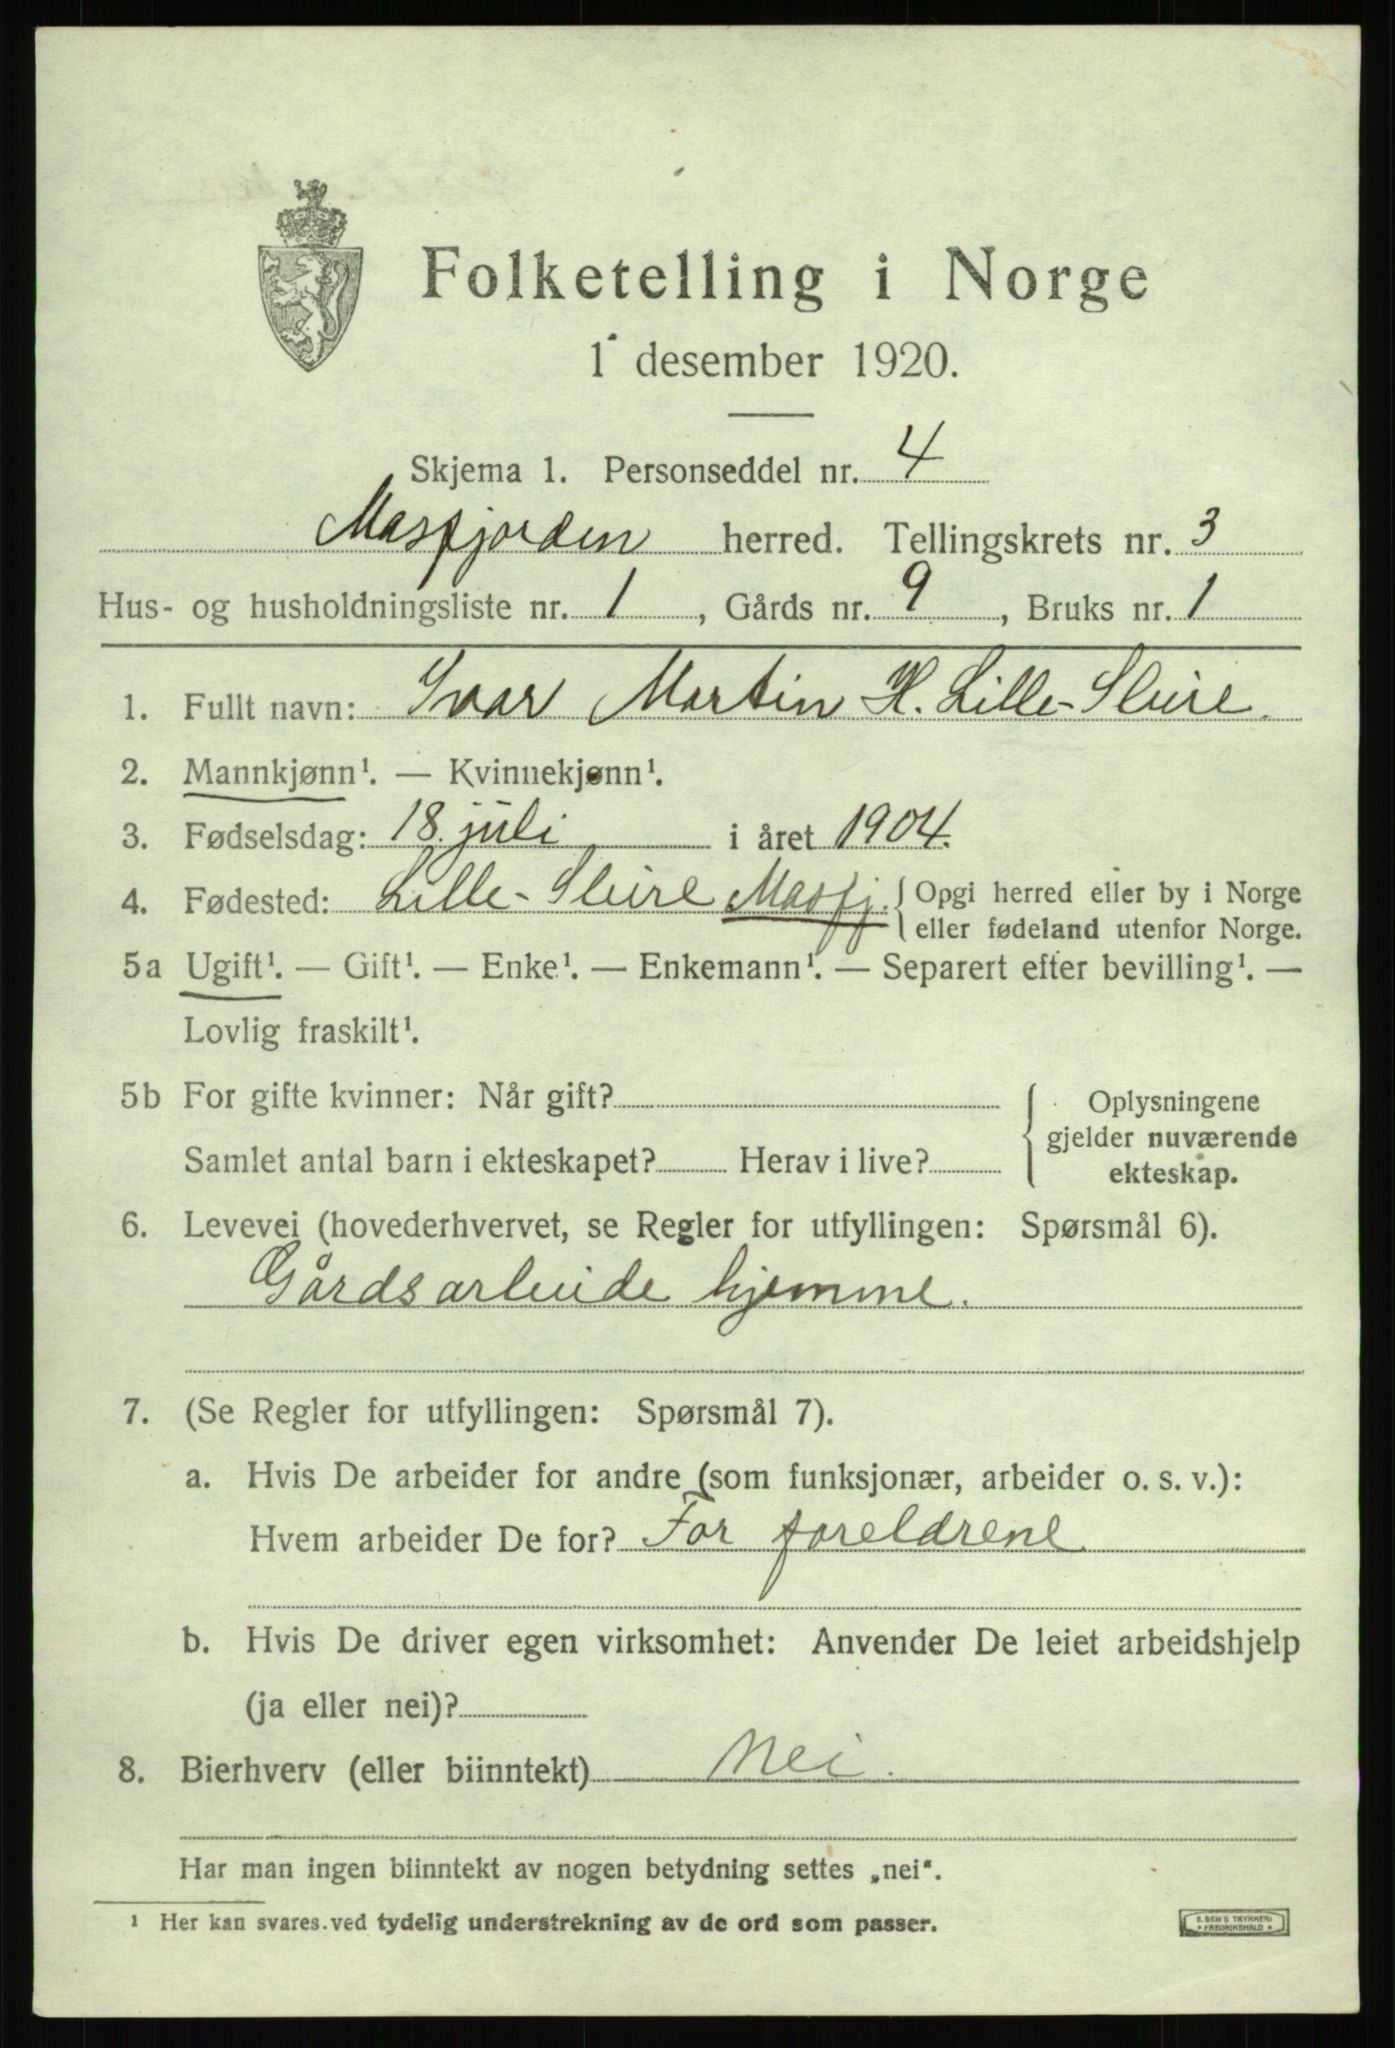 Folketelling i Norge
1 desember 1920.
Skjema 1. Personseddel nr. 4
Masfjorden herred. Tellingskrets nr. 3
Hus- og husholdningsliste nr. 1, Gårds nr. 9, Bruks nr. 1
1. Fullt navn: Ivar Martin H. Lille-Sleire.
2. Mannkjønn¹. — Kvinnekjønn¹.
3. Fødselsdag: 18. juli i året 1904.
4. Fødested: Lille-Sleire Masfj. { Opgi herred eller by i Norge
eller fødeland utenfor Norge.
5a Ugift¹. — Gift¹. — Enke¹. — Enkemann¹. — Separert efter bevilling¹. —
Lovlig fraskilt¹.
5b For gifte kvinner: Når gift?
Samlet antal barn i ekteskapet? Herav i live?
Oplysningene
gjelder nuværende
ekteskap.
6. Levevei (hovederhvervet, se Regler for utfyllingen: Spørsmål 6).
Gårdsarbeide hjemme.
7. (Se Regler for utfyllingen: Spørsmål 7).
a. Hvis De arbeider for andre (som funksjonær, arbeider o. s. v.):
Hvem arbeider De for? For foreldrene
b. Hvis De driver egen virksomhet: Anvender De leiet arbeidshjelp
(ja eller nei)?
8. Bierhverv (eller biinntekt) Nei.
Har man ingen biinntekt av nogen betydning settes „nei“.
¹ Her kan svares ved tydelig understrekning av de ord som passer.
E. SEMS TRYKKERI
FREDRIKSHALD